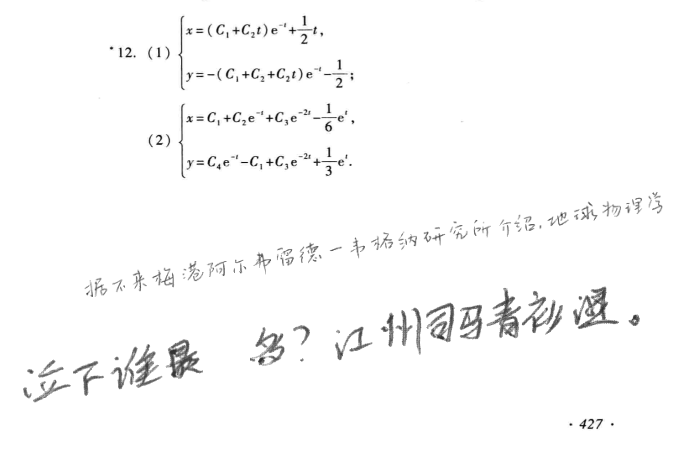 *12. (1) { x=(C₁+C₂t)e⁻ᵗ+1/2 t,
y=-(C₁+C₂+C₂t)e⁻ᵗ-1/2;
(2) { x=C₁+C₂e⁻ᵗ+C₃e⁻²ᵗ-1/6 eᵗ,
y=C₄e⁻ᵗ-C₁+C₃e⁻²ᵗ+1/3 eᵗ.
据不来梅港阿尔弗雷德一韦格纳研究所介绍,地球物理学
泣下谁最 多?江州司马青衫湿。
· 427 ·